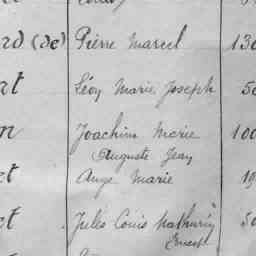 rd (de) Pierre Marcel 130
rt Léon Marie Joseph 50
n Joachim Marie 100
Auguste Jean
et Ange Marie 10
et Jules Louis Mathurin 50
Ernest